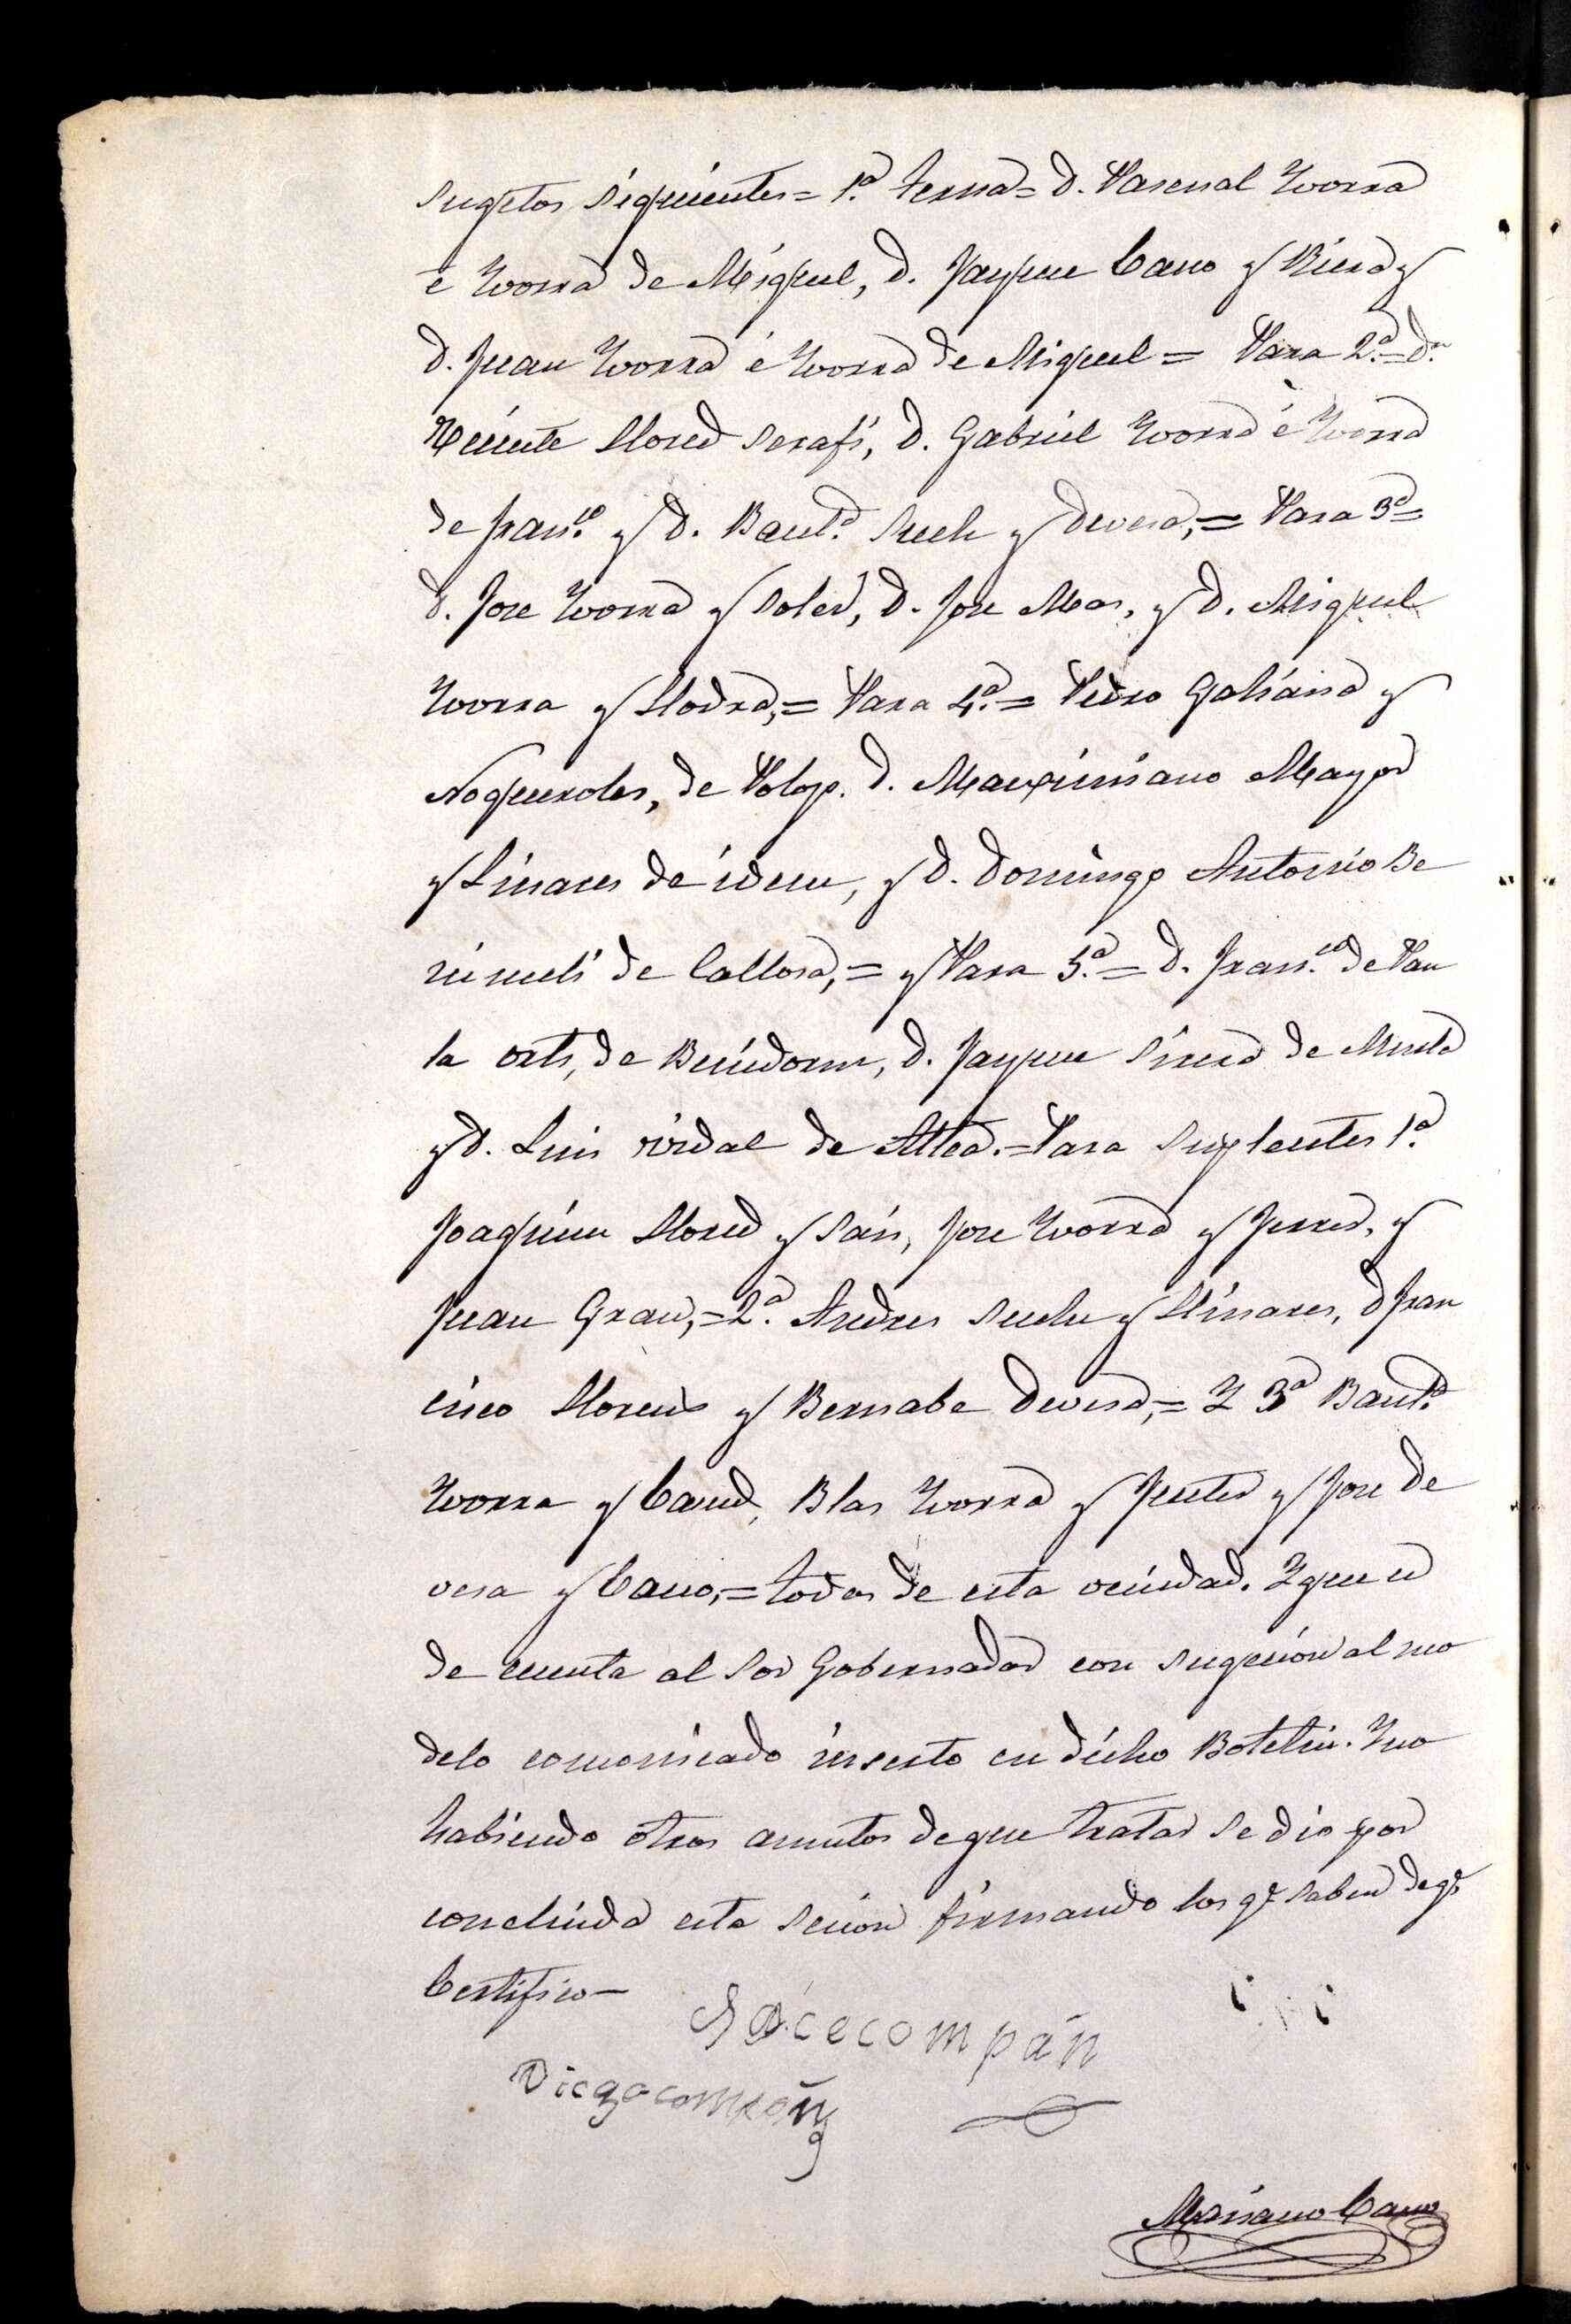 sugetos siguientes = 1.ª terna = D. Pascual Yvorra
é Yvorra de Miguel, D. Jayme Cano y Riera y
D. Juan Yvorra é Yvorra de Miguel = Para 2.ª = D.n
Vicente Llored Serafí, D. Gabriel Yvorra é Yvorra
de Fran.co y D. Baut.a Such y Devesa, = Para 3.ª =
D. Jose Yvorra y Soler, D. Jose Mas, y D. Miguel
Yvorra y Llodra, = Para 4.ª = Pedro Galiana y
Nogueroles, de Polop. D. Maximiano Mayor
y Linares de idem, y D. Domingo Antonio Be
rimeli de Callosa, = y Para 5.ª = D. Fran.co de Pau
la Orts, de Benidorm, D. Jayme Sirera de Murla
y D. Luis Vidal de Altea. = Para Suplentes 1.ª
Joaquin Llored y Sais, Jose Yvorra y Ferrer, y
Juan Grau, = 2.ª Andres Such y Llinares, D Fran
cisco Llorens y Bernabe Devesa, = Y 3ª Baut.a
Yvorra y Cano, Blas Yvorra y Fuster y Jose De
vesa y Cano, = todos de esta vecindad. Y que se
de cuenta al Sor Gobernador con sugecion al mo
delo comonicado inserto en dicho Boletin. Y no
habiendo otros asuntos de que tratar se dio por
concluida esta Sesion firmando los q.e saben de q.e
Certifico—
Compán
Diego compañ
Mariano Cano